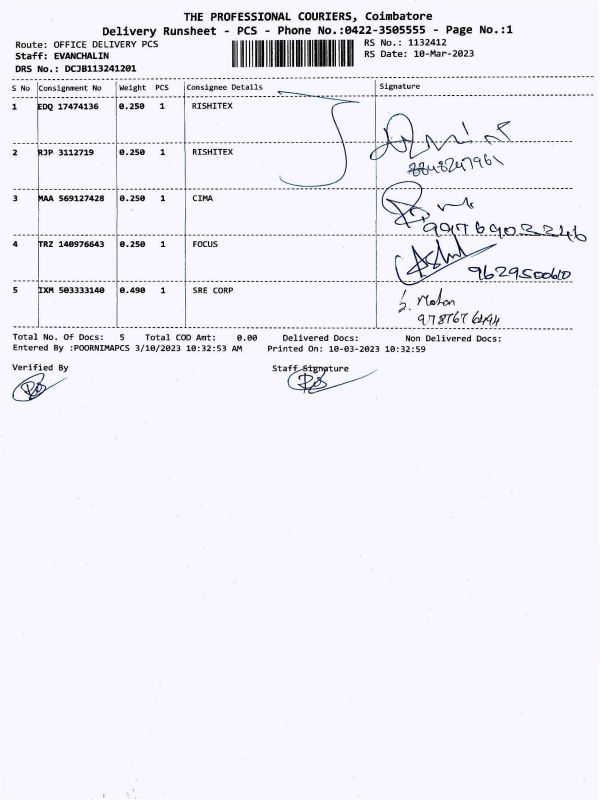 THE PROFESSIONAL COURIERS, Coimbatore
Delivery Runsheet - PCS - Phone No.:0422-3505555 - Page No.:1
Route: OFFICE DELIVERY PCS
RS No.: 1132412
Staff: EVANCHALIN
RS Date: 10-Mar-2023
DRS No.: DCJB113241201
S No Consignment No Weight PCS Consignee Details Signature
1 EDQ 17474136 0.250 1 RISHITEX
2 RJP 3112719 0.250 1 RISHITEX
3 MAA 569127428 0.250 1 CIMA
4 TRZ 140976643 0.250 1 FOCUS
9629500610
5 IXM 503333140 0.490 1 SRE CORP
S. Mohan
Total No. Of Docs: 5 Total COD Amt: 0.00 Delivered Docs: Non Delivered Docs:
Entered By :POORNIMAPCS 3/10/2023 10:32:53 AM Printed On: 10-03-2023 10:32:59
Verified By Staff Signature